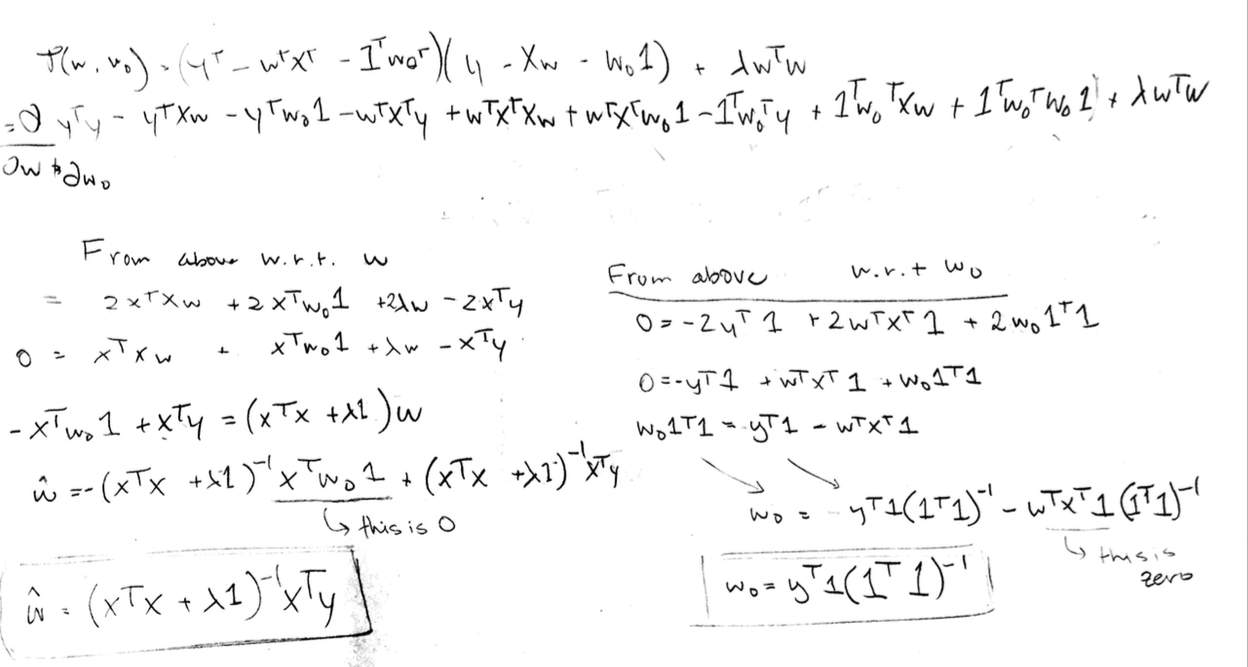 J(w, w₀) = (yᵀ - wᵀxᵀ - 1ᵀw₀ᵀ)(y - Xw - w₀1) + λwᵀw
= ∂ yᵀy - yᵀXw - yᵀw₀1 - wᵀXᵀy + wᵀXᵀXw + wᵀXᵀw₀1 - 1ᵀw₀ᵀy + 1ᵀw₀ᵀXw + 1ᵀw₀ᵀw₀1 + λwᵀw
∂w & ∂w₀
From above w.r.t. w
= 2xᵀxw + 2xᵀw₀1 + 2λw - 2xᵀy
0 = xᵀxw + xᵀw₀1 + λw - xᵀy
-xᵀw₀1 + xᵀy = (xᵀx + λ1)w
ŵ = -(xᵀx + λ1)⁻¹xᵀw₀1 + (xᵀx + λ1)⁻¹xᵀy
↳ this is 0
ŵ = (xᵀx + λ1)⁻¹xᵀy
From above w.r.t w₀
0 = -2yᵀ1 + 2wᵀxᵀ1 + 2w₀1ᵀ1
0 = -yᵀ1 + wᵀxᵀ1 + w₀1ᵀ1
w₀1ᵀ1 = yᵀ1 - wᵀxᵀ1
w₀ = yᵀ1(1ᵀ1)⁻¹ - wᵀxᵀ1(1ᵀ1)⁻¹
↳ this is
zero
w₀ = yᵀ1(1ᵀ1)⁻¹